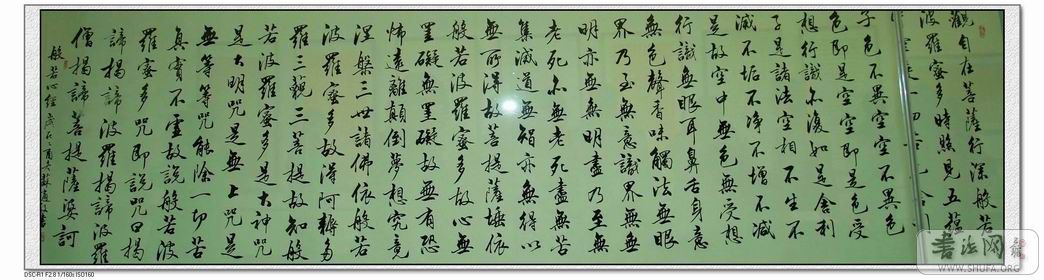 觀自在菩薩行深般若
波羅蜜多時照見五蘊
一切
子色不異空空不異色
色即是空空即是色受
想行識亦復如是舍利
子是諸法空相不生不
滅不垢不净不增不減
是故空中無色無受想
行識無眼耳鼻舌身意
無色聲香味觸法無眼
界乃至無意識界無無
明亦無無明盡乃至無
老死亦無老死盡無苦
集滅道無智亦無得以
無所得故菩提薩埵依
般若波羅蜜多故心無
罣礙無罣礙故無有恐
怖遠離顛倒夢想究竟
涅槃三世諸佛依般若
波羅蜜多故得阿耨多
羅三藐三菩提故知般
若波羅蜜多是大神咒
是大明咒是無上咒是
無等等咒能除一切苦
真實不虛故說般若波
羅蜜多咒即說咒曰揭
諦揭諦波羅揭諦波羅
僧揭諦菩提薩婆訶
般若心經
书法网
WWW.SHUFA.ORG
DSC-R1 F2.8 1/160s ISO160